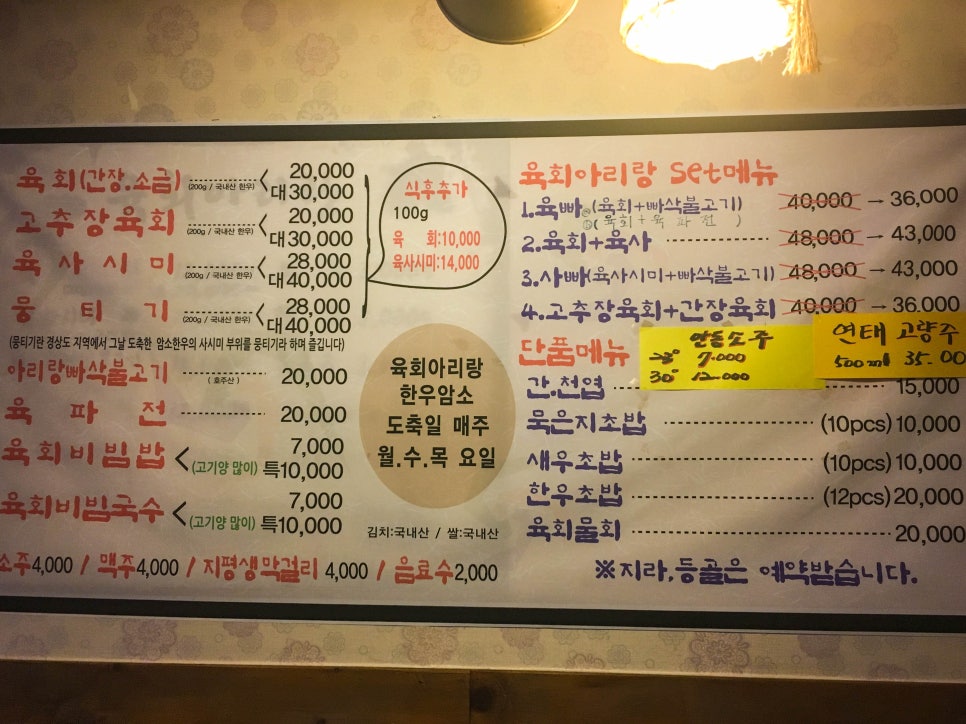 육회(간장.소금) (200g / 국내산 한우) < 20,000
대30,000
고추장육회 (200g / 국내산 한우) < 20,000
대30,000
육사시미 (200g / 국내산 한우) < 28,000
대40,000
뭉티기 (200g / 국내산 한우) < 28,000
대40,000
(뭉티기란 경상도 지역에서 그날 도축한 암소한우의 사시미 부위를 뭉티기라 하며 즐깁니다)
아리랑빠삭불고기 (호주산) 20,000
육파전 20,000
육회비빔밥 < 7,000
(고기양 많이) 특10,000
육회비빔국수 < 7,000
(고기양 많이) 특10,000
소주4,000 / 맥주4,000 / 지평생막걸리 4,000 / 음료수2,000
식후추가
100g
육 회:10,000
육사시미:14,000
육회아리랑
한우암소
도축일 매주
월.수.목 요일
김치:국내산 / 쌀:국내산
육회아리랑 Set메뉴
1.육빠 (육회+빠삭불고기) 40,000 → 36,000
(육회+육파전)
2.육회+육사 48,000 → 43,000
3.사빠(육사시미+빠삭불고기) 48,000 → 43,000
4.고추장육회+간장육회 40,000 → 36,000
단품메뉴
안동소주
7.000
30° 12.000
연태 고량주
500ml 35.00
간.천엽 15,000
묵은지초밥 (10pcs) 10,000
새우초밥 (10pcs) 10,000
한우초밥 (12pcs) 20,000
육회물회 20,000
※지라,등골은 예약받습니다.